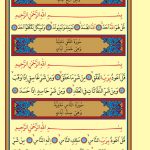 بِسْمِ اللَّهِ الرَّحْمَٰنِ الرَّحِيمِ
قُلْ هُوَ اللَّهُ أَحَدٌ اللَّهُ الصَّمَدُ لَمْ يَلِدْ وَلَمْ يُولَدْ وَلَمْ يَكُنْ لَهُ كُفُوًا أَحَدٌ
سورة الفلق
بِسْمِ اللَّهِ الرَّحْمَٰنِ الرَّحِيمِ
قُلْ أَعُوذُ بِرَبِّ الْفَلَقِ مِنْ شَرِّ مَا خَلَقَ وَمِنْ شَرِّ غَاسِقٍ إِذَا
وَقَبَ وَمِنْ شَرِّ النَّفَّاثَاتِ فِي الْعُقَدِ وَمِنْ شَرِّ حَاسِدٍ إِذَا حَسَدَ
سورة الناس
بِسْمِ اللَّهِ الرَّحْمَٰنِ الرَّحِيمِ
قُلْ أَعُوذُ بِرَبِّ النَّاسِ مَلِكِ النَّاسِ إِلَٰهِ النَّاسِ